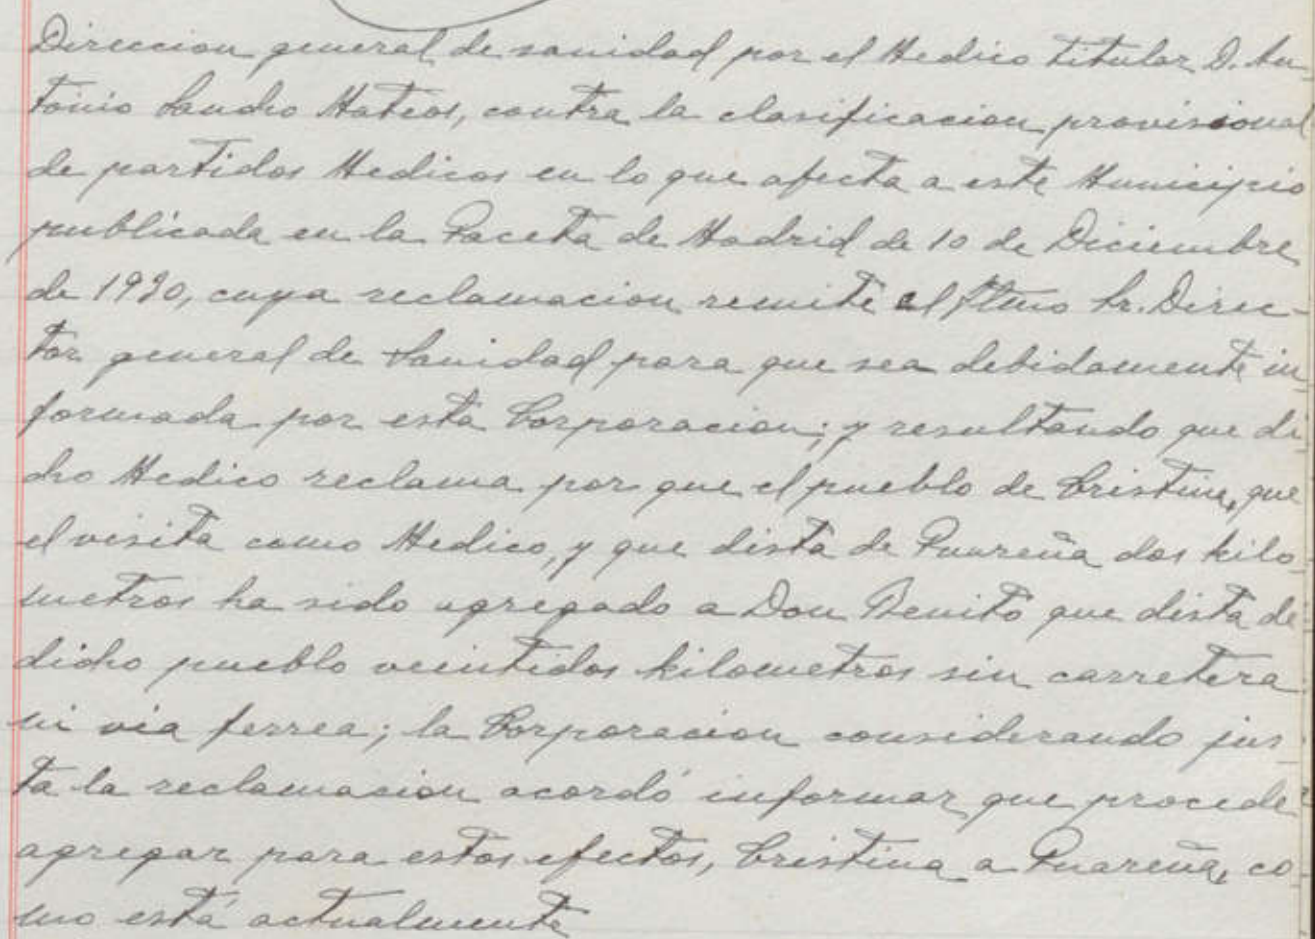 Direccion general de sanidad por el Medico titular D. An
tonio Sancho Mateos, contra la clasificacion provisional
de partidos Medicos en lo que afecta a este Municipio
publicada en la Gaceta de Madrid de 10 de Diciembre
de 1930, cuya reclamacion remite el Iltmo Sr. Direc-
tor general de Sanidad para que sea debidamente in
formada por esta Corporacion; y resultando que di
cho Medico reclama por que el pueblo de Cristina, que
el visita como Medico, y que dista de Guareña dos kilo
metros ha sido agregado a Don Benito que dista de
dicho pueblo veintidos kilometros sin carretera
ni via ferrea; la Corporacion considerando jus
ta la reclamacion acordó informar que procede
agregar para estos efectos, Cristina a Guareña, co
mo está actualmente